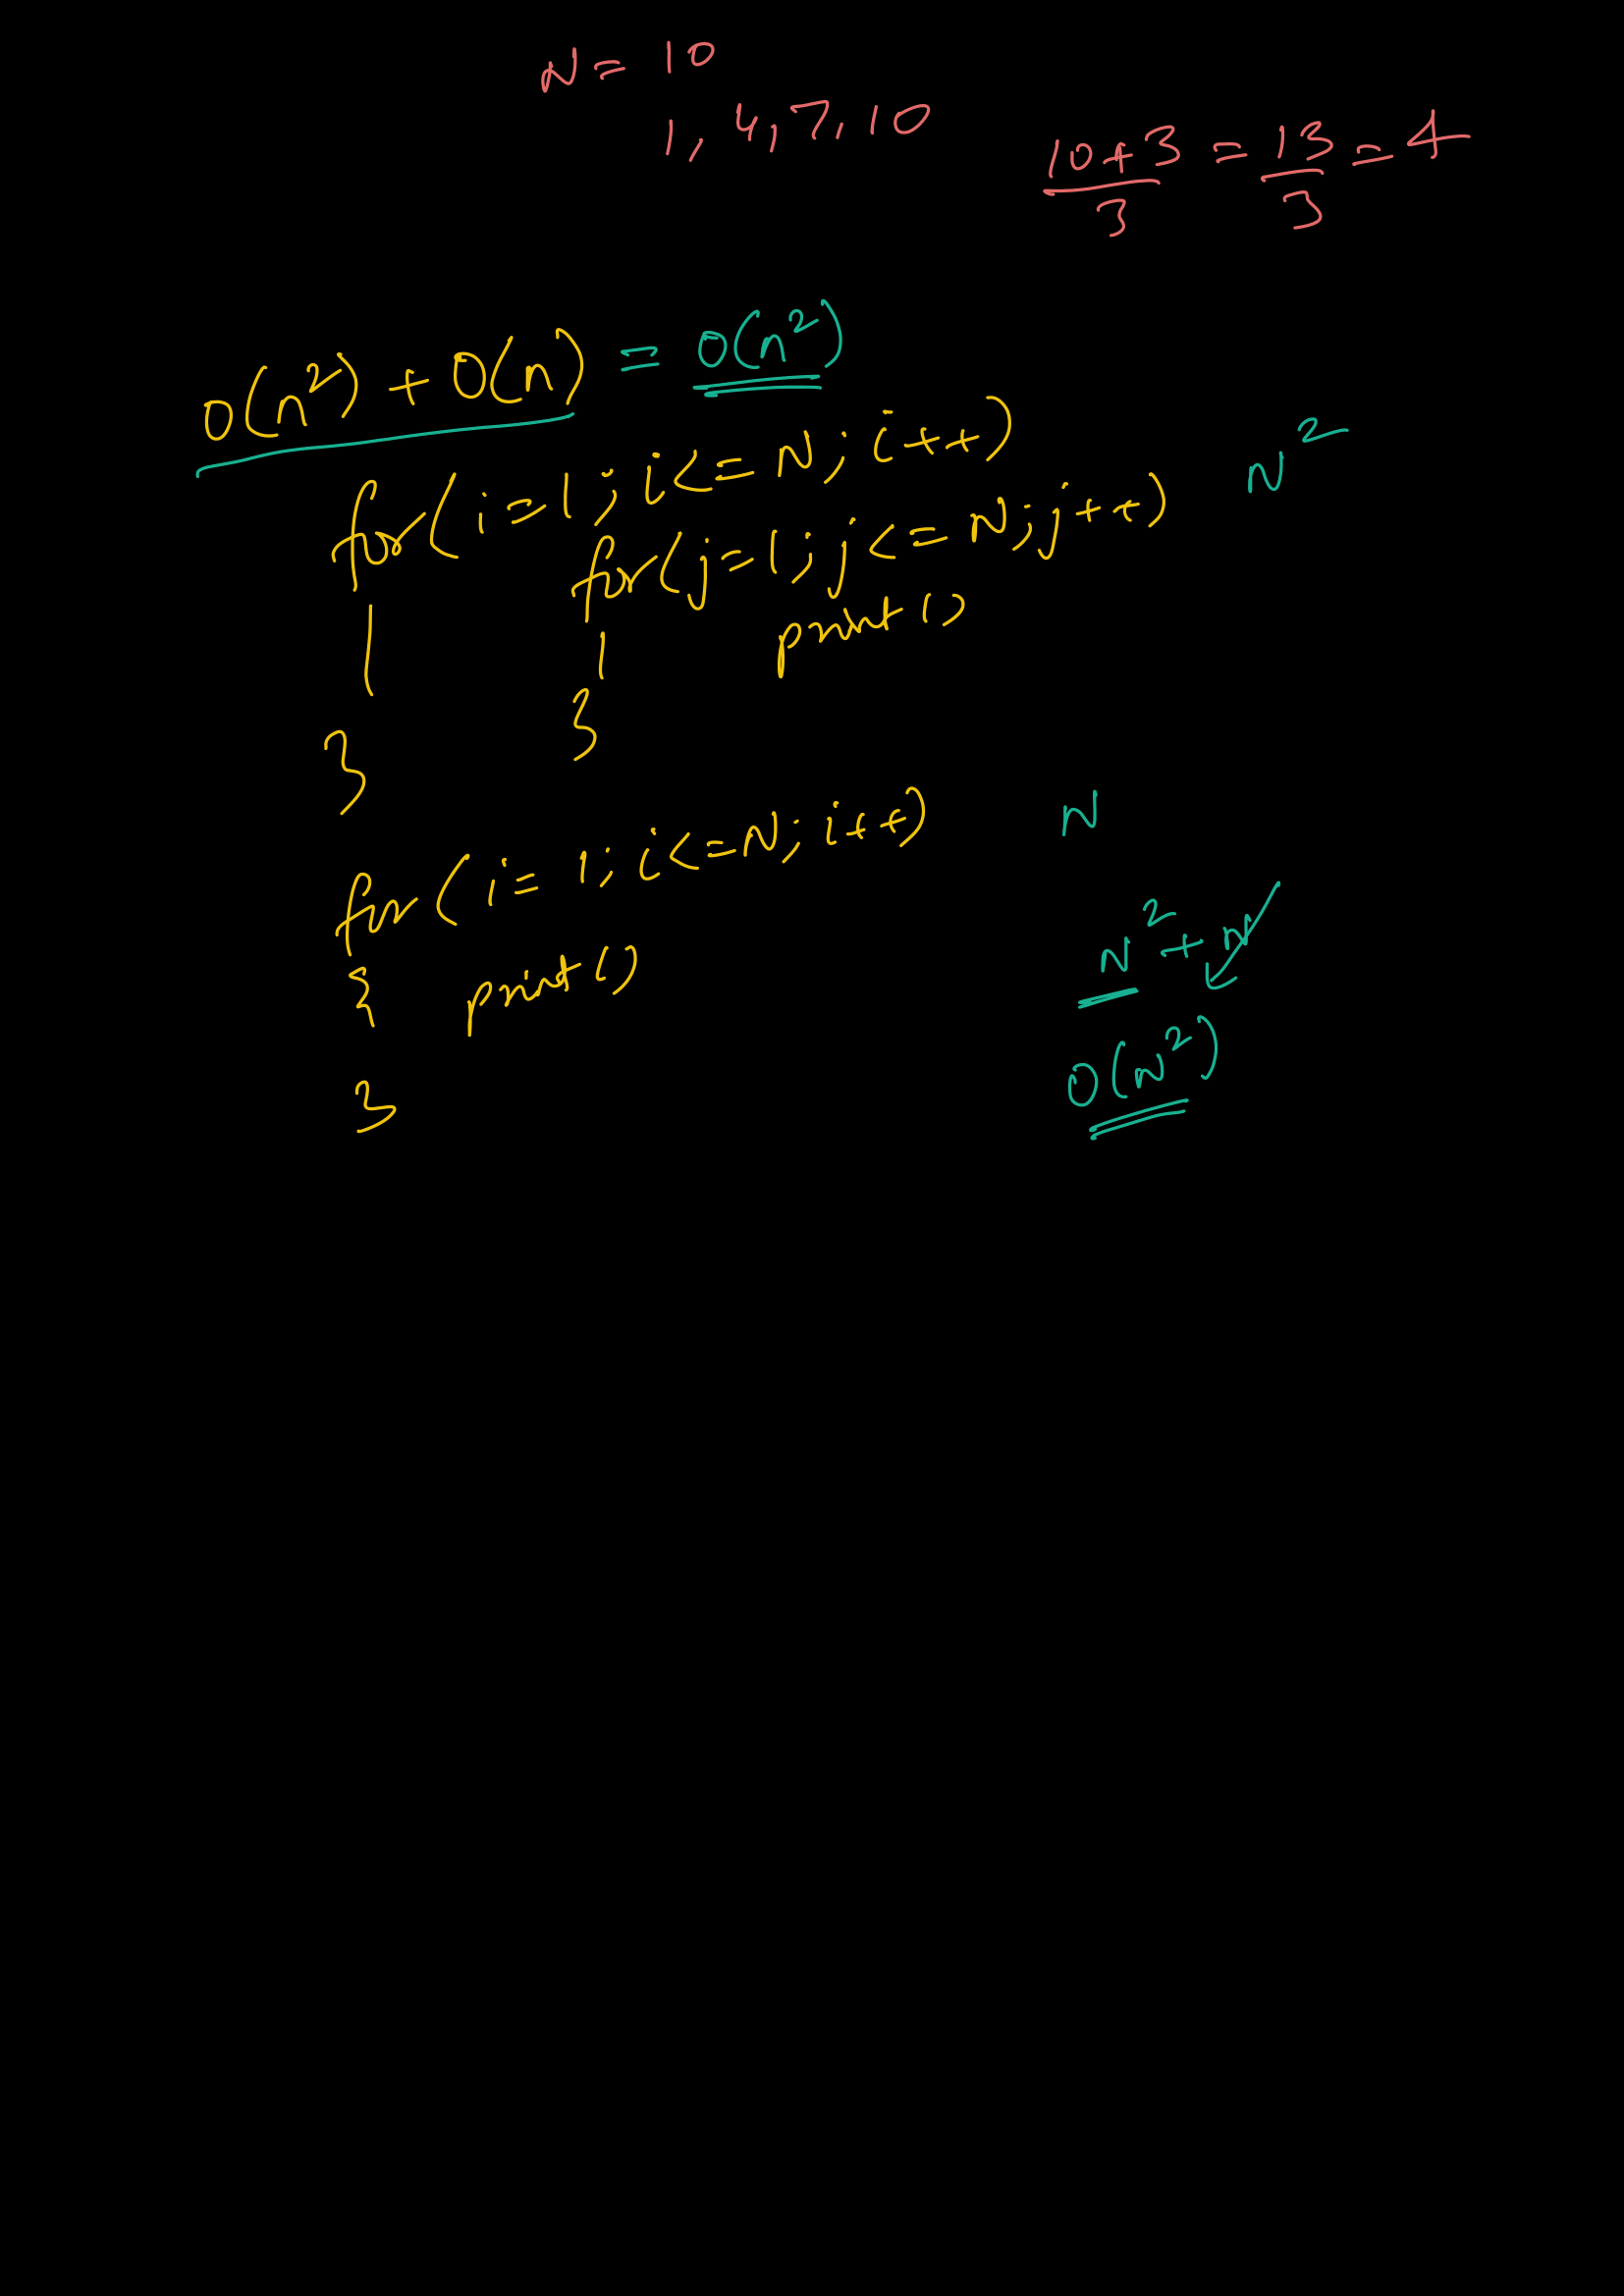 N = 10
1, 4, 7, 10
10+3/3 = 13/3 = 4
O(n²) + O(n) = O(n²)
for( i=1; i<=N; i++) N²
for(j=1; j<=N; j++)
print()
}
}
for( i= 1; i<=N; i++) N
{ print()
N² + N
}
O(N²)